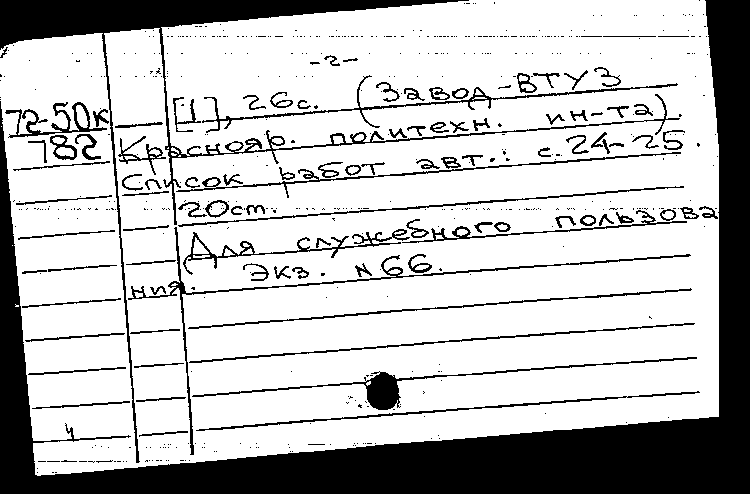 -2-
72-50к [1], 26с. (Завод-ВТУЗ
782 Краснояр. политехн. ин-та).
Список работ авт.: с.24-25.
20cm.
Для служебного пользова
ния. Экз. N66.
4